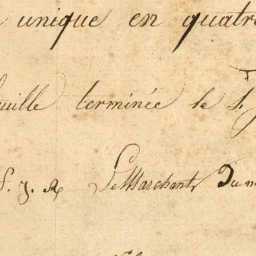 unique en quatre
feuille terminée le 4
S. J. R LeMarchant Du m